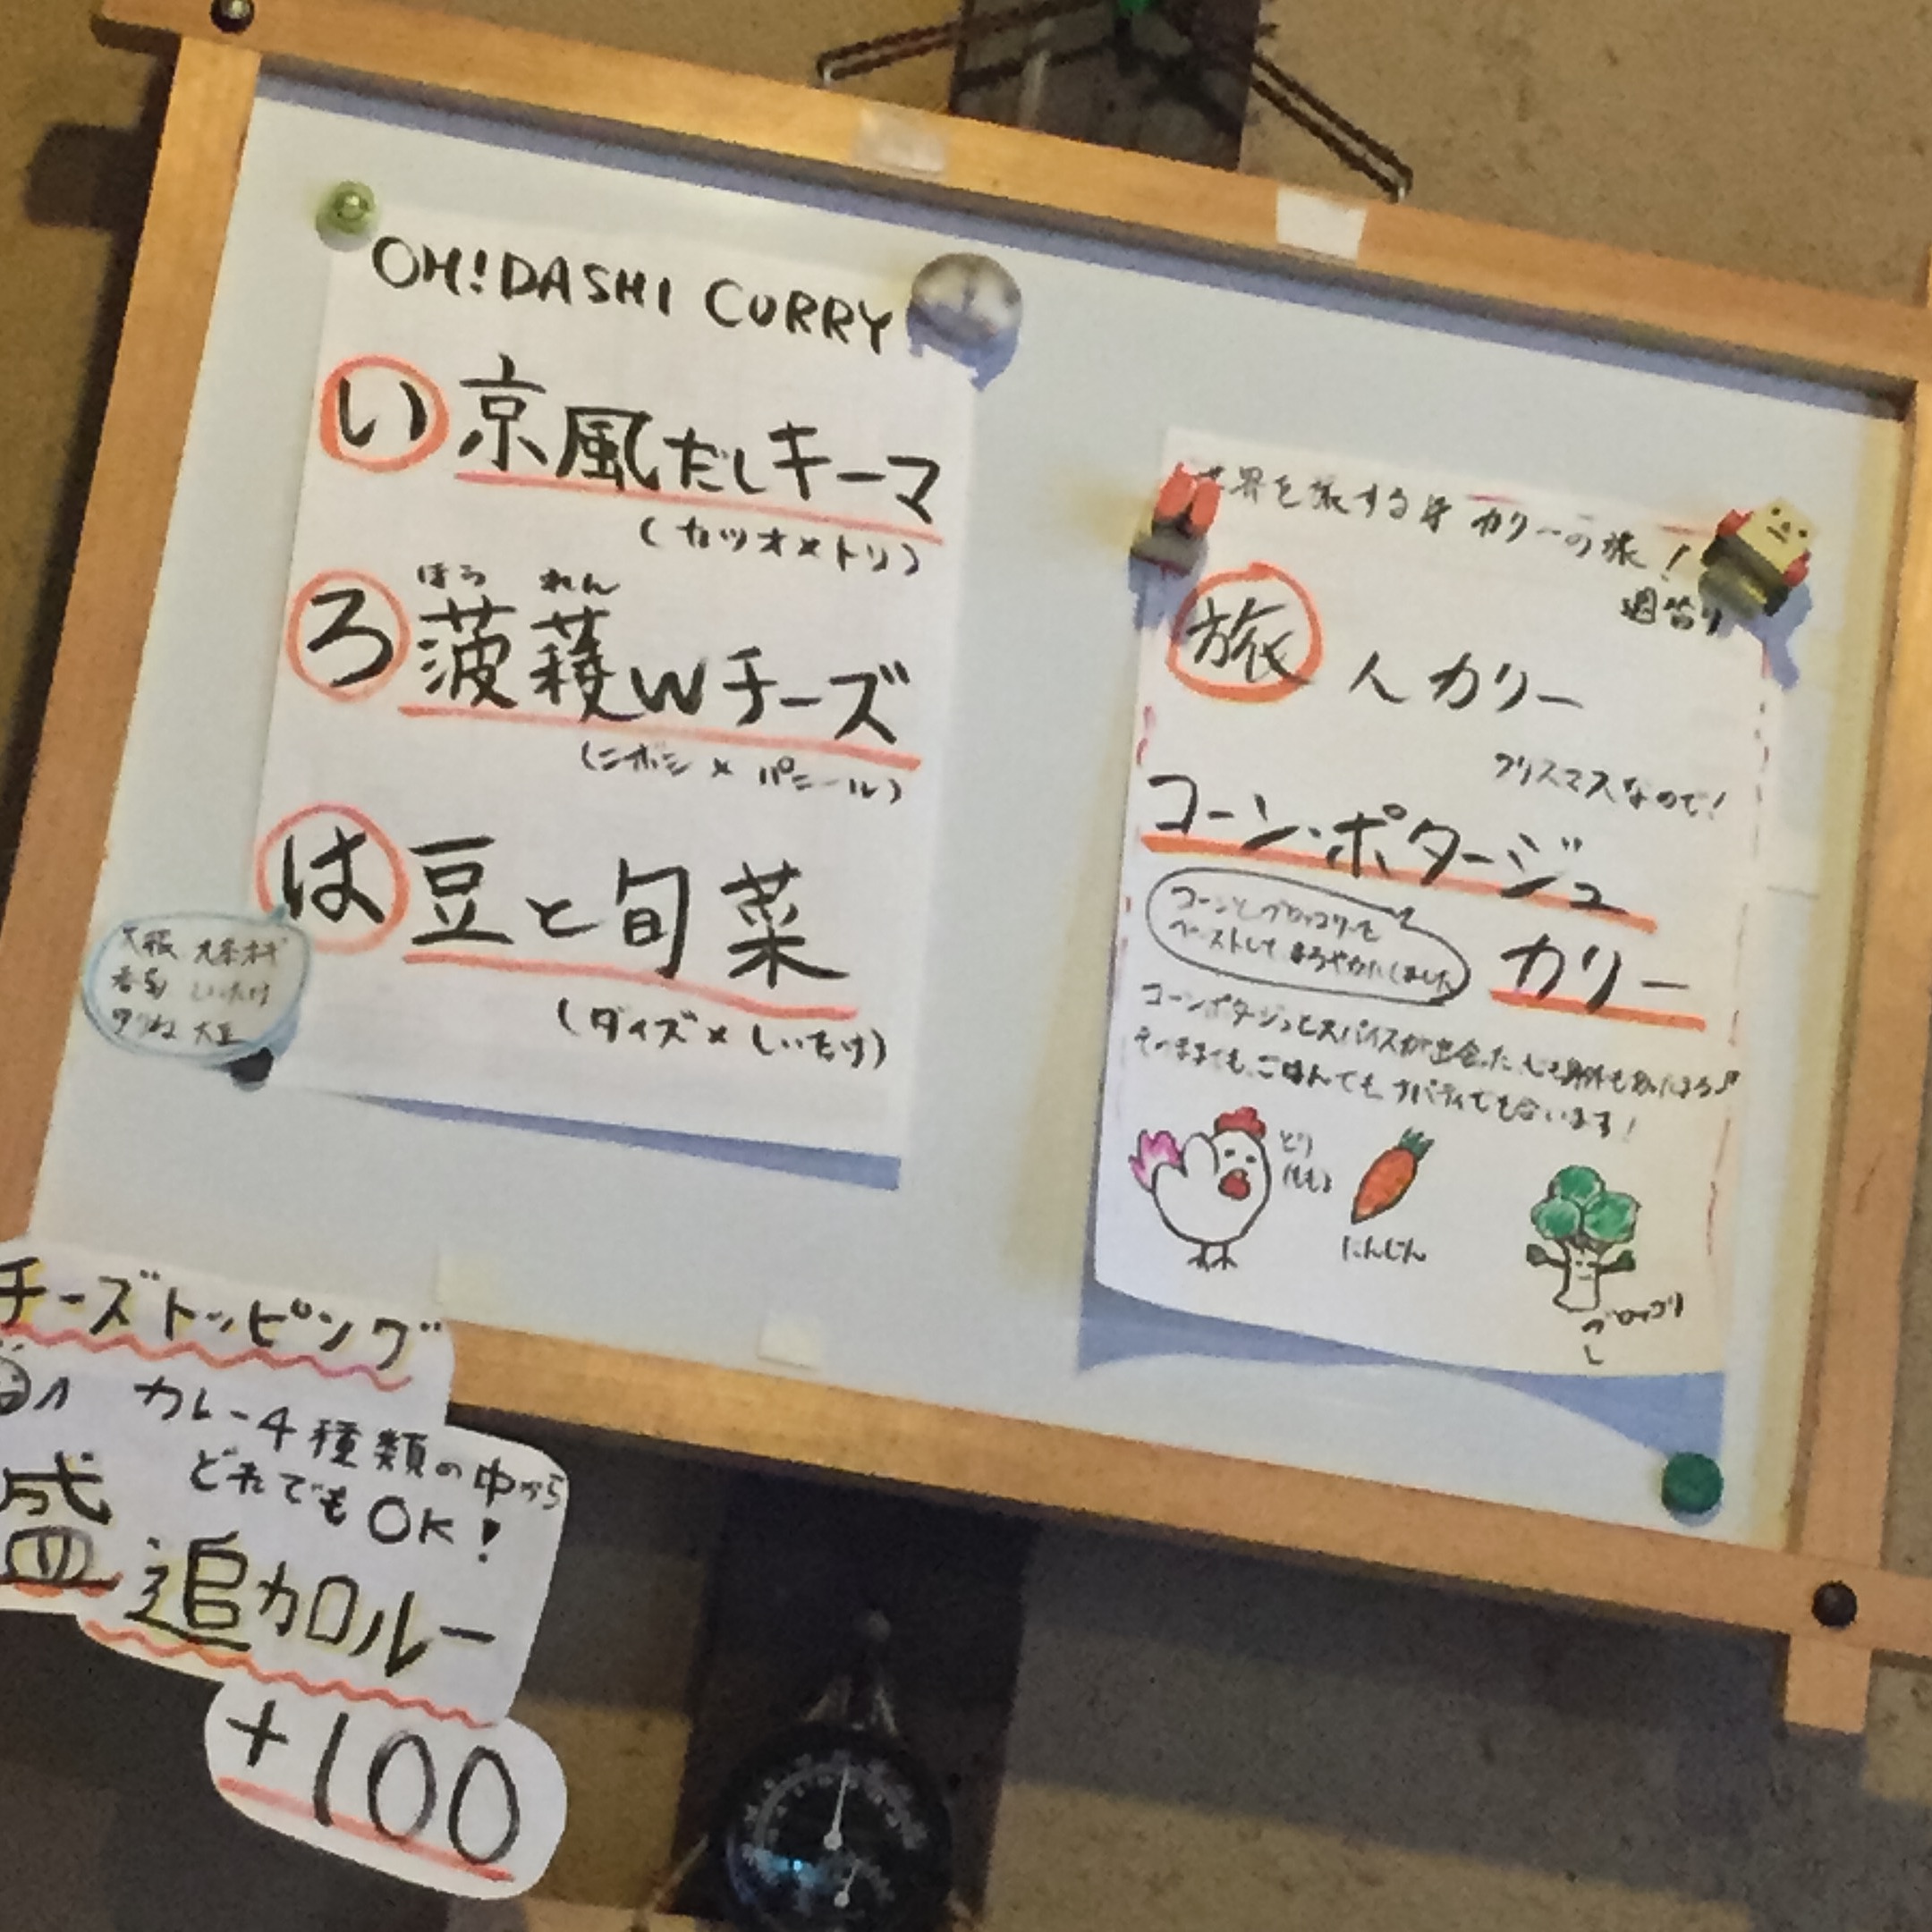 OH!DASHI CURRY
い 京風だしキーマ
(カツオ×トリ)
ほう れん
ろ 菠薐Wチーズ
(ニボシ×パニール)
は 豆と旬菜
(ダイズ×しいたけ)
大根
しいたけ
大豆
世界を旅する カリーの旅!
週替り
旅人カリー
クリスマスなので!
コーン・ポタージュ
カリー
コーンとブロッコリーを
ペーストしてまろやかにしました
コーンポタージュとスパイスが出会った
そのままでも、ごはんでも、チャパティでも合います!
とり
(もも)
にんじん
ブロッコリー
チーズトッピング
カレー4種類の中から
どれでもOK!
盛 追加ルー
+100